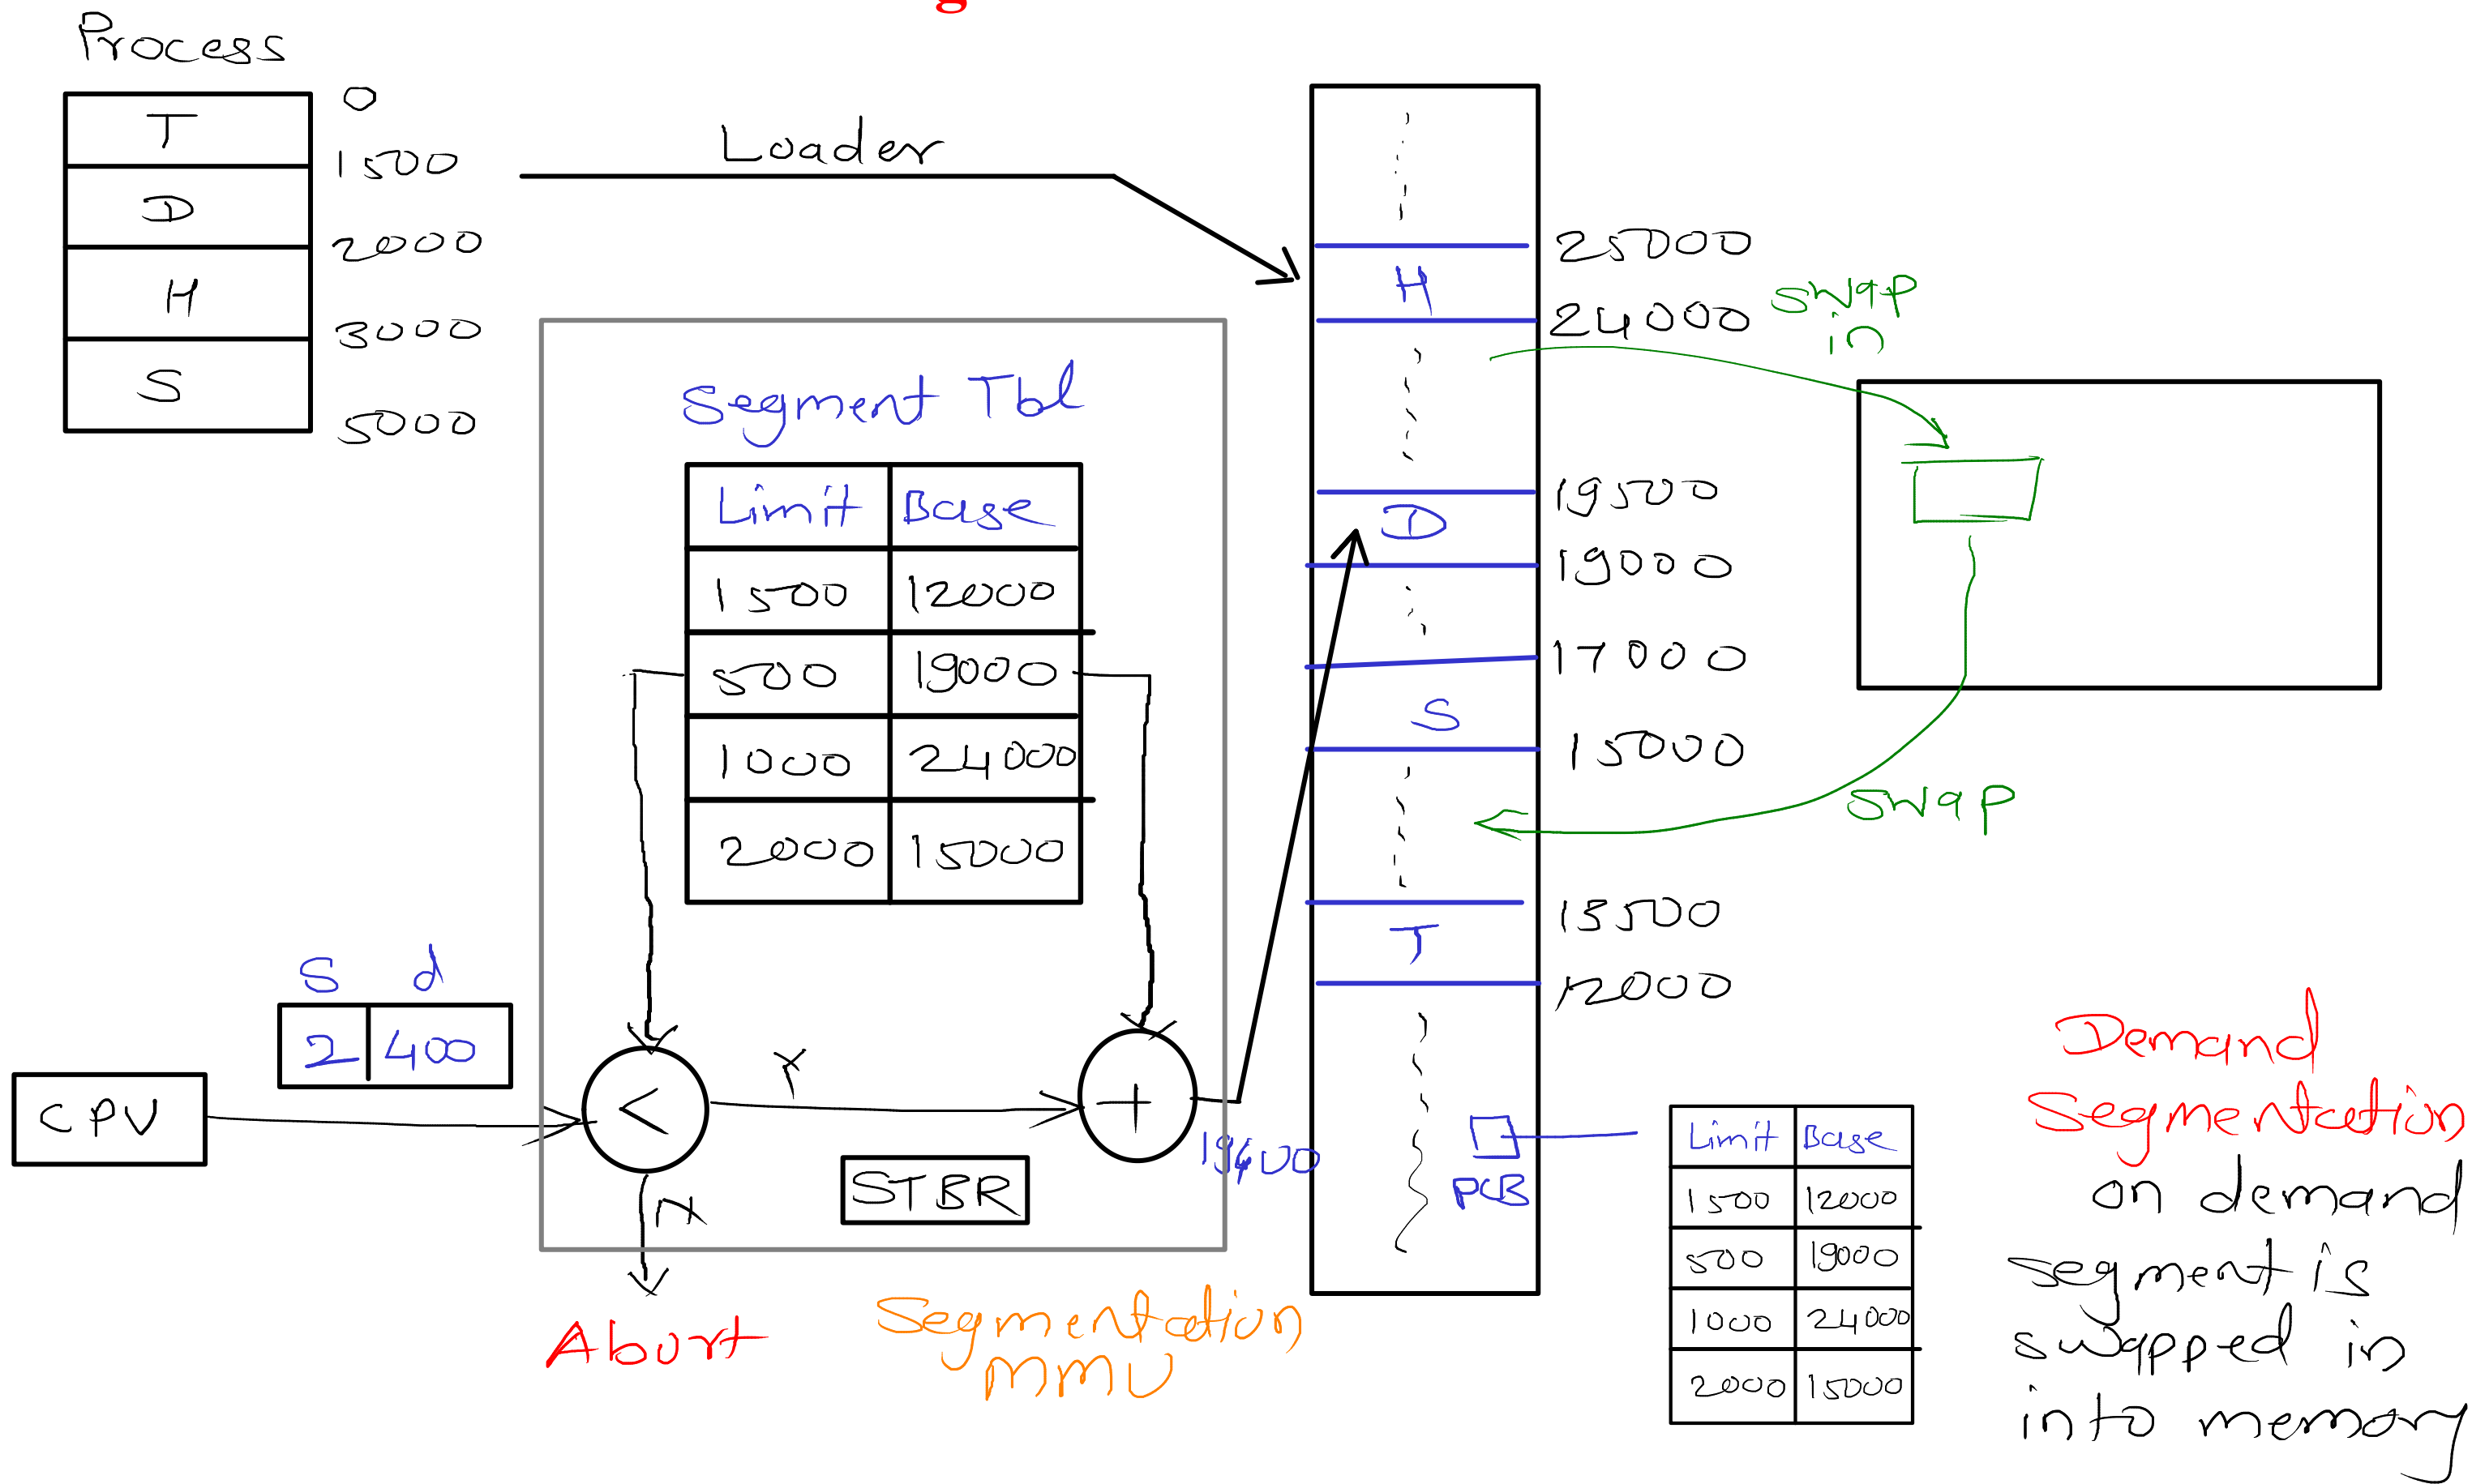 Process
T
D
H
S
0
1500
2000
3000
5000
Loader
Segment Tbl
Limit Base
1500 12000
500 19000
1000 24000
2000 15000
S d
2 400
CPU
<
Y
+
N
STBR
19400
Abort
Segmentation
MMU
H
D
S
T
PCB
25000
24000
19500
19000
17000
15000
13500
12000
swap
in
swap
Limit Base
1500 12000
500 19000
1000 24000
2000 15000
Demand
Segmentation
on demand
segment is
swapped in
into memory